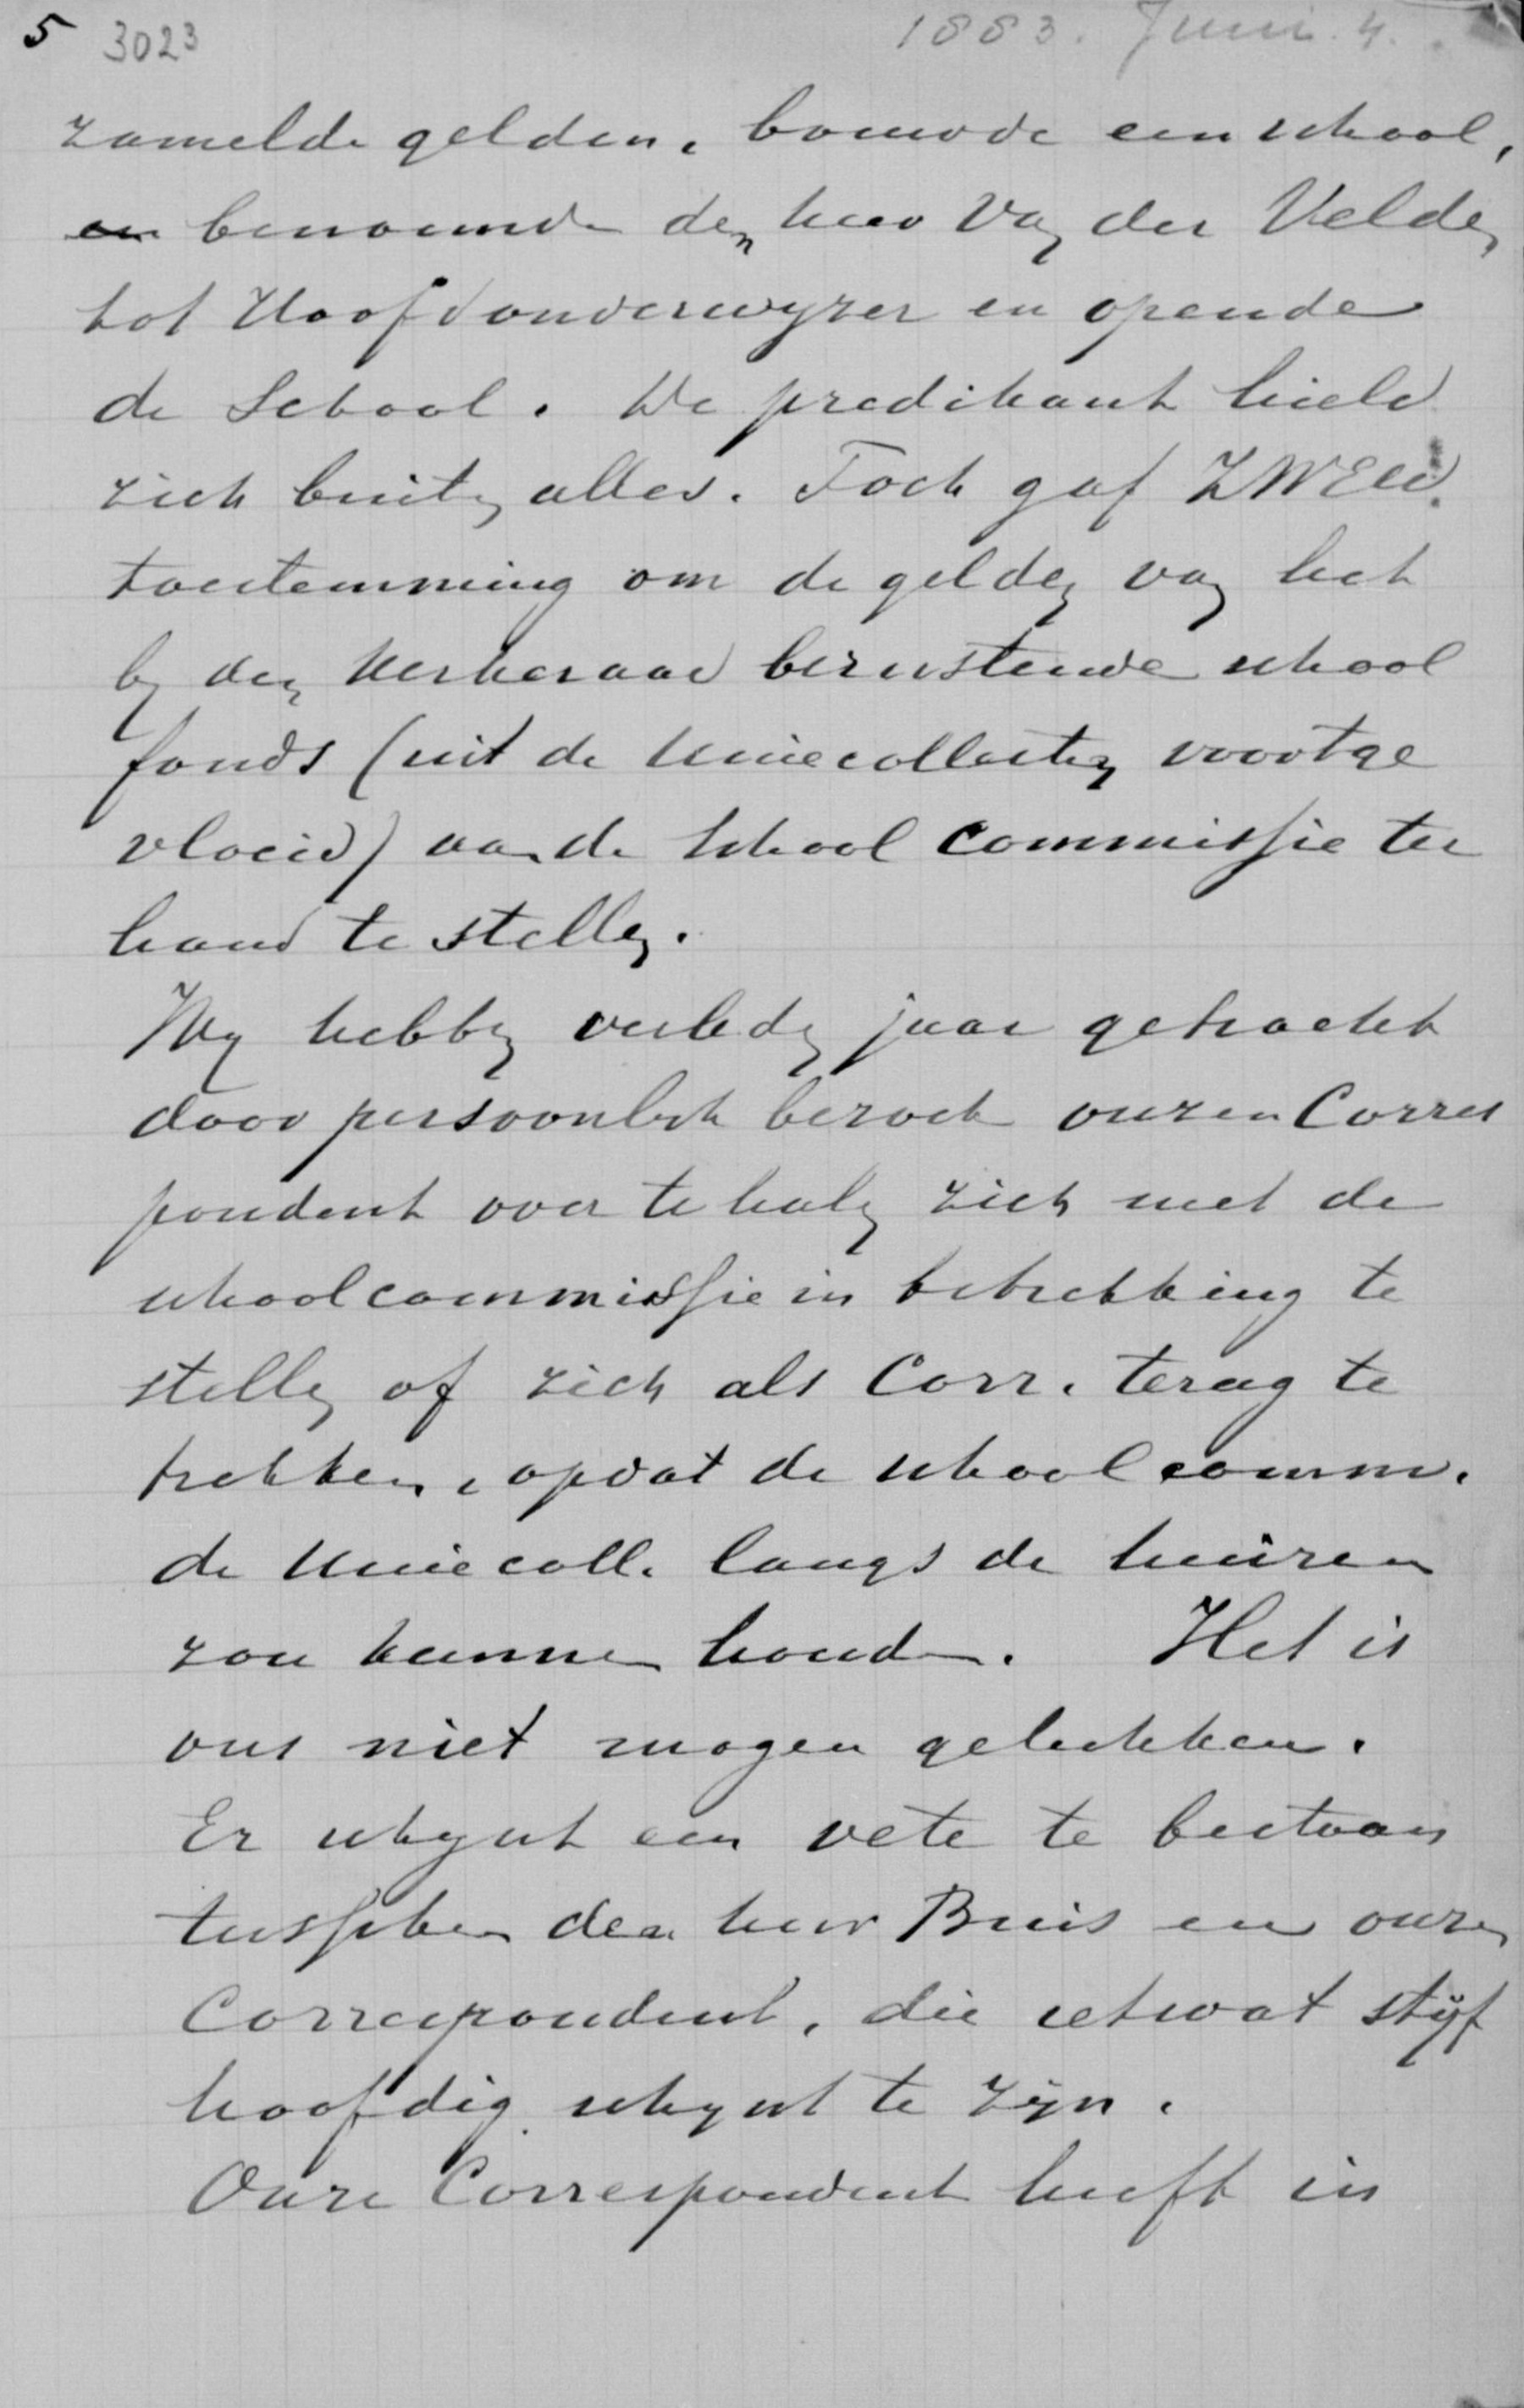 5 3023 1883. Juni. 4.
zamelde gelden, bouwde een school,
en benoemde den heer Van der Velden
tot Hoofdonderwyzer en opende
de School. De predikant hield
zich buiten alles. Toch gaf ZWEld.
toestemming om de gelden van het
by den Kerkeraad berustende school
fonds (uit de Uniecollecten voortge
vloeid) aan de School commissie ter
hand te stellen.
Wy hebben verleden jaar getracht
door persoonlyk bezoek onzen Corres
pondent over te halen zich met de
schoolcommissie in betrekking te
stellen of zich als Corr. terug te
trekken, opdat de schoolcomm.
de Uniecoll. langs de huizen
zou kunnen houden. Het is
ons niet mogen gelukken.
Er schynt een vete te bestaan
tusschen den heer Buis en onzen
Correspondent, die ietwat styf
hoofdig schynt te zyn.
Onze Correspondent heeft in